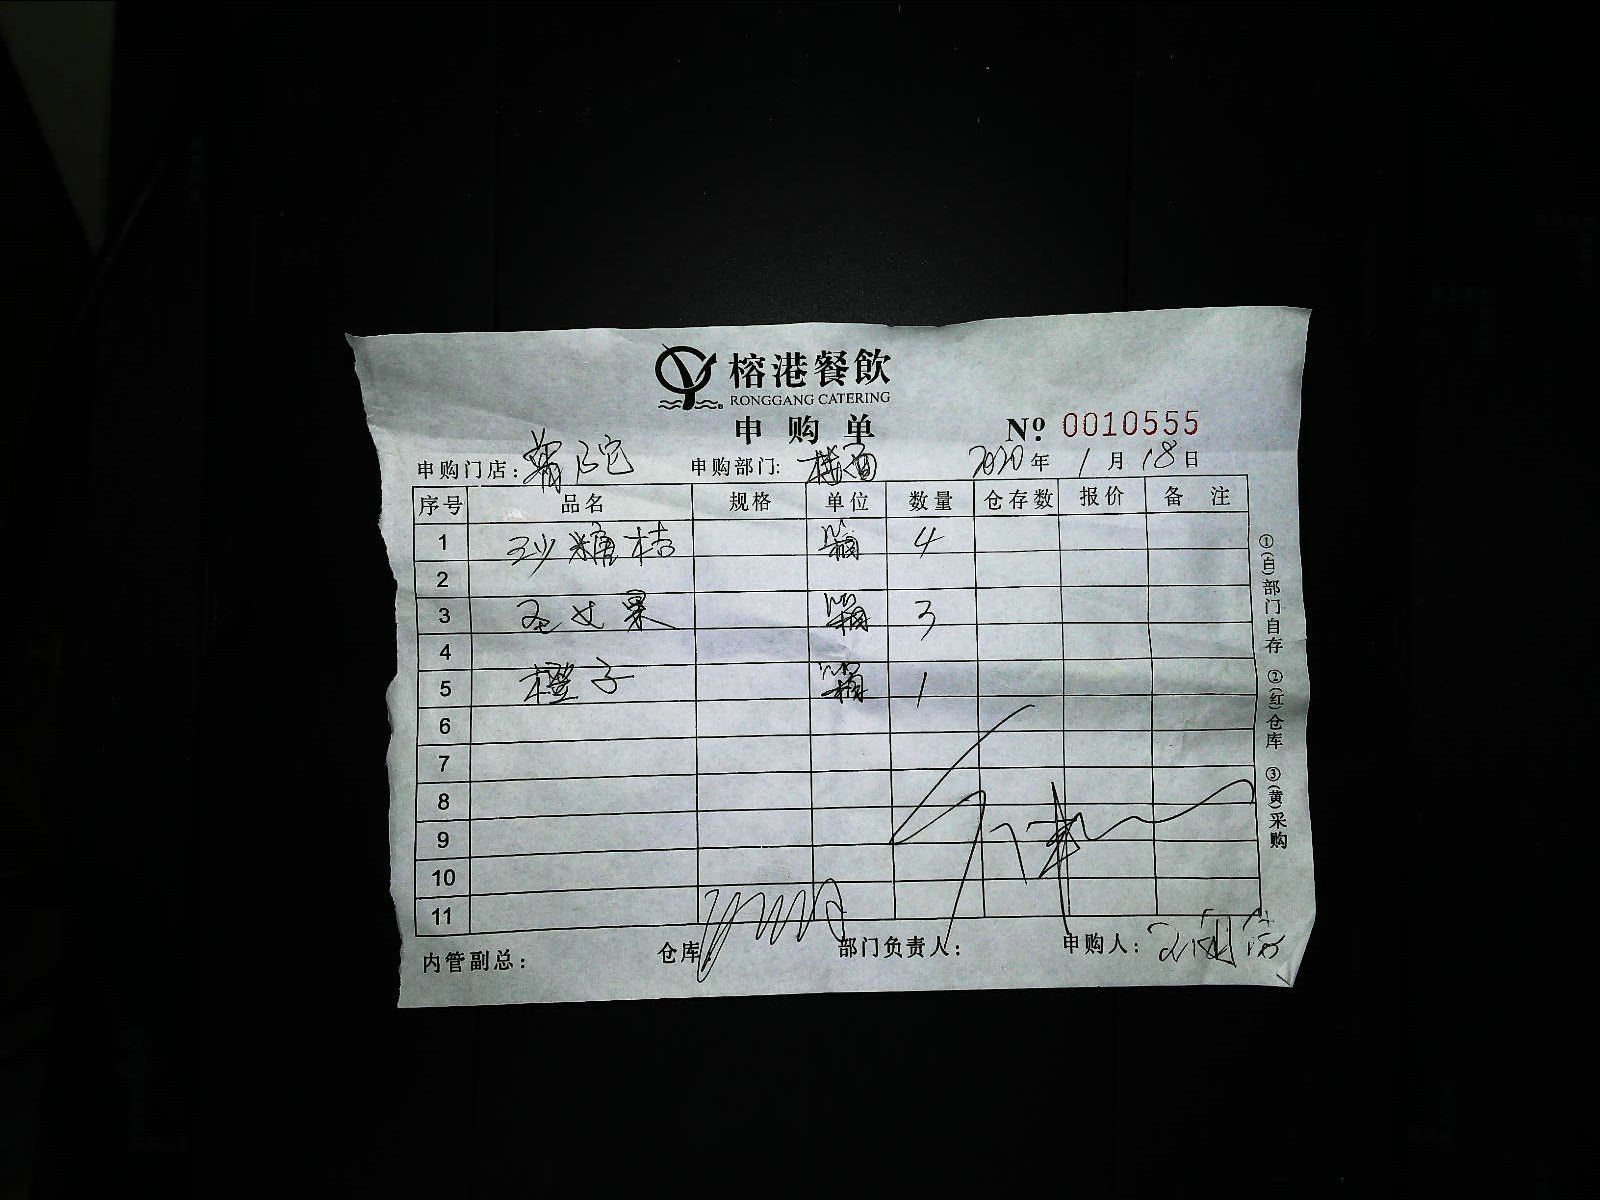 榕港餐飲
RONGGANG CATERING
申购单 Nº 0010555
申购门店: 申购部门: 楼面 2020年1月18日
序号 品名 规格 单位 数量 仓存数 报价 备注
1 砂糖桔 箱 4
2
3 圣女果 箱 3
4
5 橙子 箱 1
6
7
8
9
10
11
内管副总: 仓库: 部门负责人: 申购人:
①(白)部门自存 ②(红)仓库 ③(黄)采购